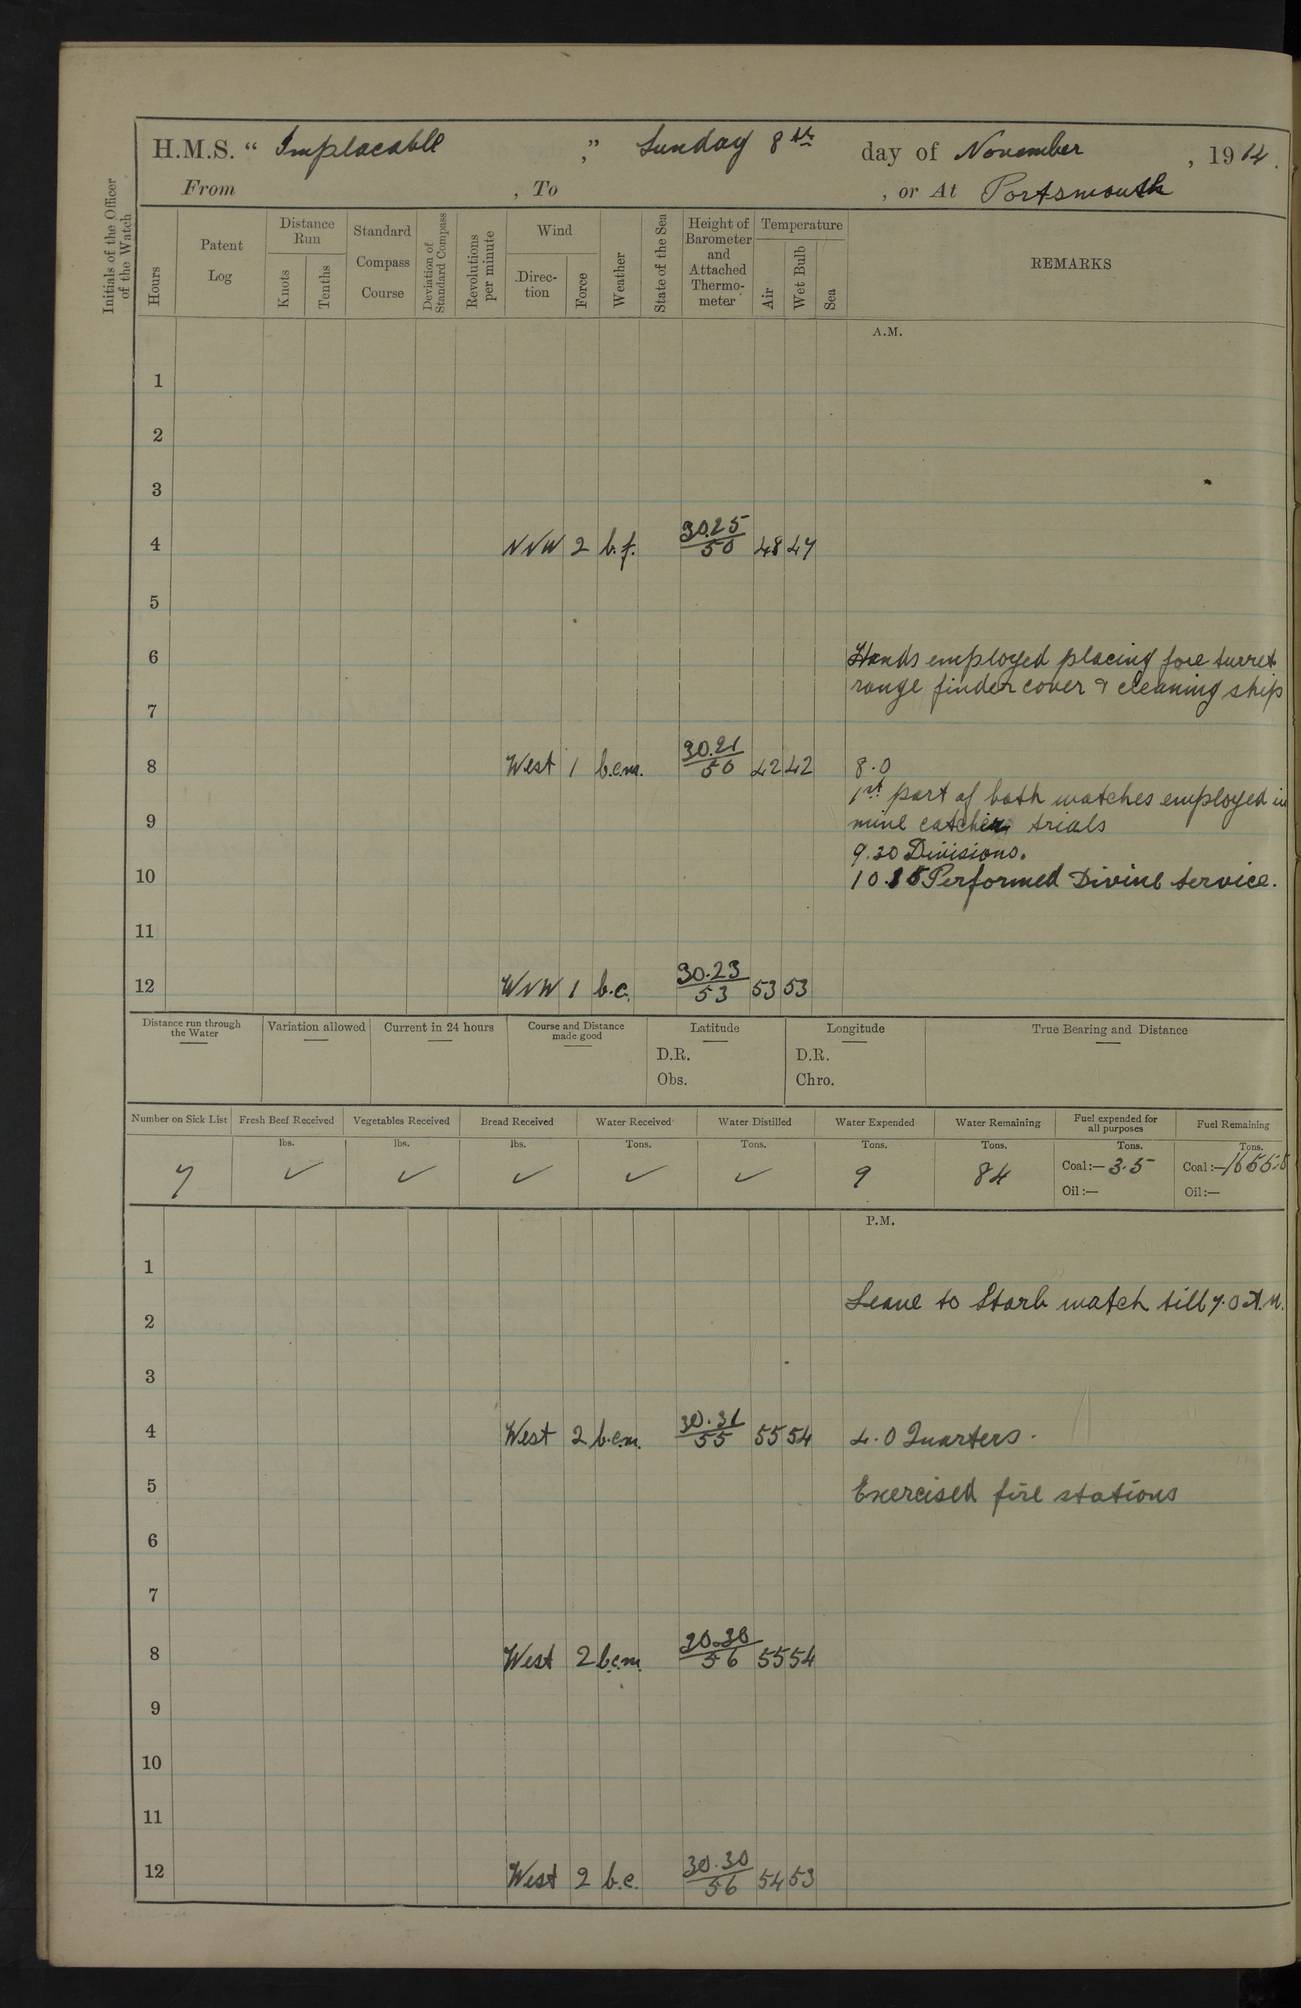 H.M.S. “ Implacable ,” Sunday 8th day of November , 1914.
From , To , or At Portsmouth
Initials of the Officer of the Watch
Hours
Patent Log
Distance Run
Knots
Tenths
Standard Compass Course
Deviation of Standard Compass
Revolutions per minute
Wind
Direc-tion
Force
Weather
State of the Sea
Height of Barometer and Attached Thermo-meter
Temperature
Air
Wet Bulb
Sea
REMARKS
A.M.
1
2
3
4 NNW 2 b.f. 30.25/50 48 47
5
6 Hands employed placing fore turret
range finder cover & cleaning ship
7
8 West 1 b.c.m. 30.21/50 42 42 8.0
1st part of both watches employed in
9 mine catching trials
9.20 Divisions.
10 10.15 Performed Divine Service.
11
12 WNW 1 b.c. 30.23/53 53 53
Distance run through the Water
Variation allowed
Current in 24 hours
Course and Distance made good
Latitude
D.R.
Obs.
Longitude
D.R.
Chro.
True Bearing and Distance
Number on Sick List Fresh Beef Received Vegetables Received Bread Received Water Received Water Distilled Water Expended Water Remaining Fuel expended for all purposes Fuel Remaining
lbs. lbs. lbs. Tons. Tons. Tons. Tons. Tons. Tons.
7 ✓ ✓ ✓ ✓ ✓ 9 84 Coal:— 3.5 Coal:— 1655.8
Oil:— Oil:—
P.M.
1
Leave to Starb watch till 7.0 A.M.
2
3
4 West 2 b.c.m. 30.31/55 55 54 4.0 Quarters.
5 Exercised fire stations
6
7
8 West 2 b.c.m. 30.30/56 55 54
9
10
11
12 West 2 b.c. 30.30/56 54 53